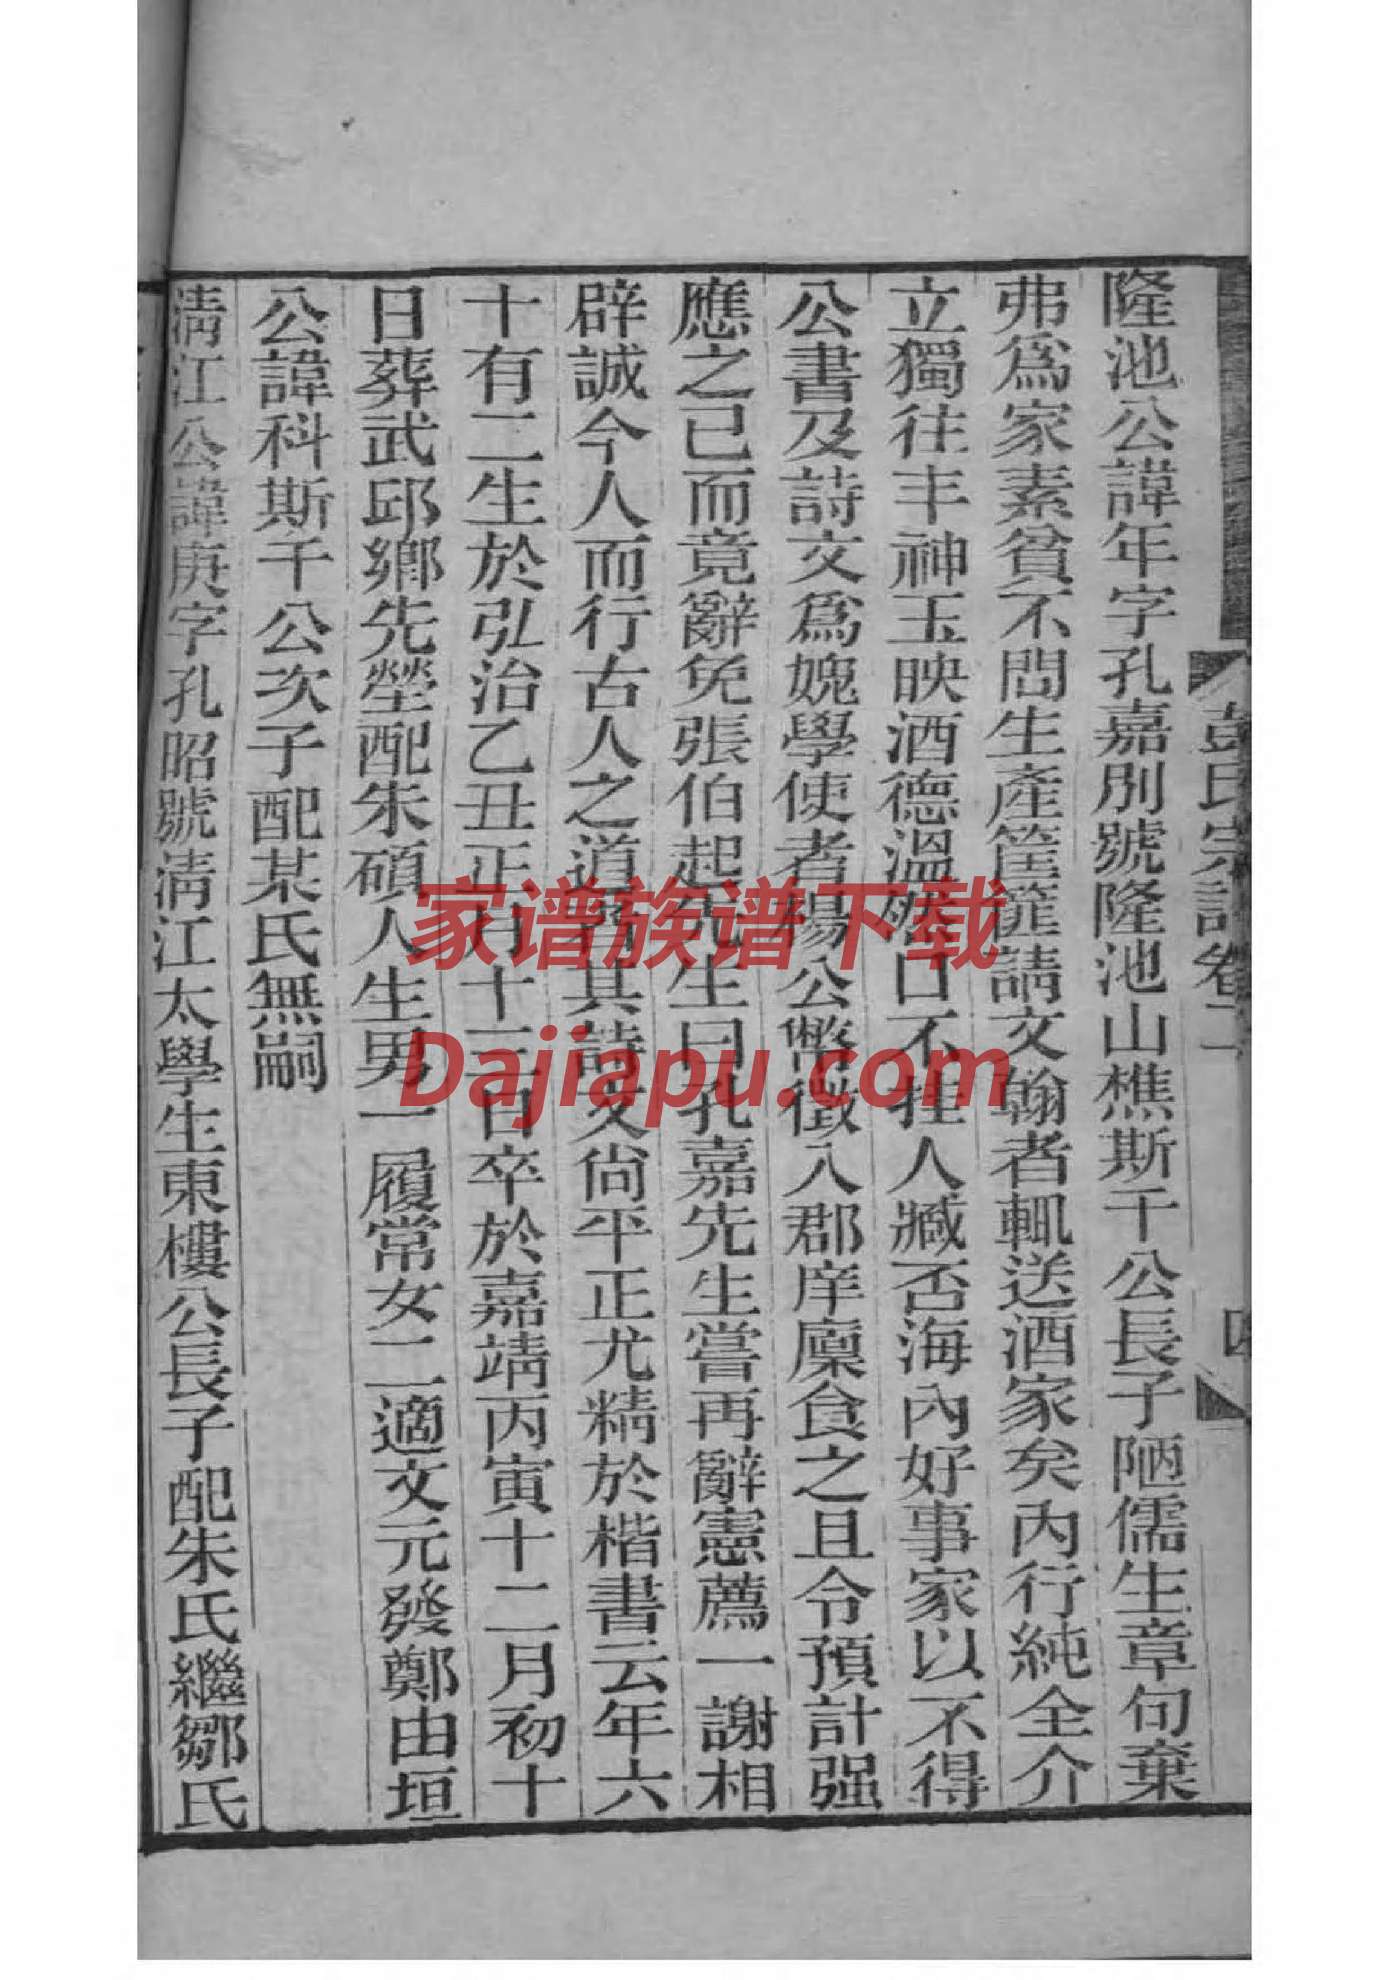 彭氏宗譜卷二
四
隆池公諱年字孔嘉別號隆池山樵斯干公長子陋儒生章句棄
弗爲家素貧不問生產筐篚請文翰者輒送酒家矣內行純全介
立獨往丰神玉映酒德溫然口不挂人臧否海內好事家以不得
公書及詩文爲媿學使者楊公幣徵入郡庠廩食之且令預計强
應之已而竟辭免張伯起先生曰孔嘉先生嘗再辭憲薦一謝相
辟誠今人而行古人之道者其詩文尙平正尤精於楷書云年六
十有二生於弘治乙丑正月十二日卒於嘉靖丙寅十二月初十
日葬武邱鄉先塋配朱碩人生男一履常女二適文元發鄭由垣
公諱科斯干公次子配某氏無嗣
淸江公諱庚字孔昭號淸江太學生東樓公長子配朱氏繼鄒氏
家谱族谱下载
Dajiapu.com